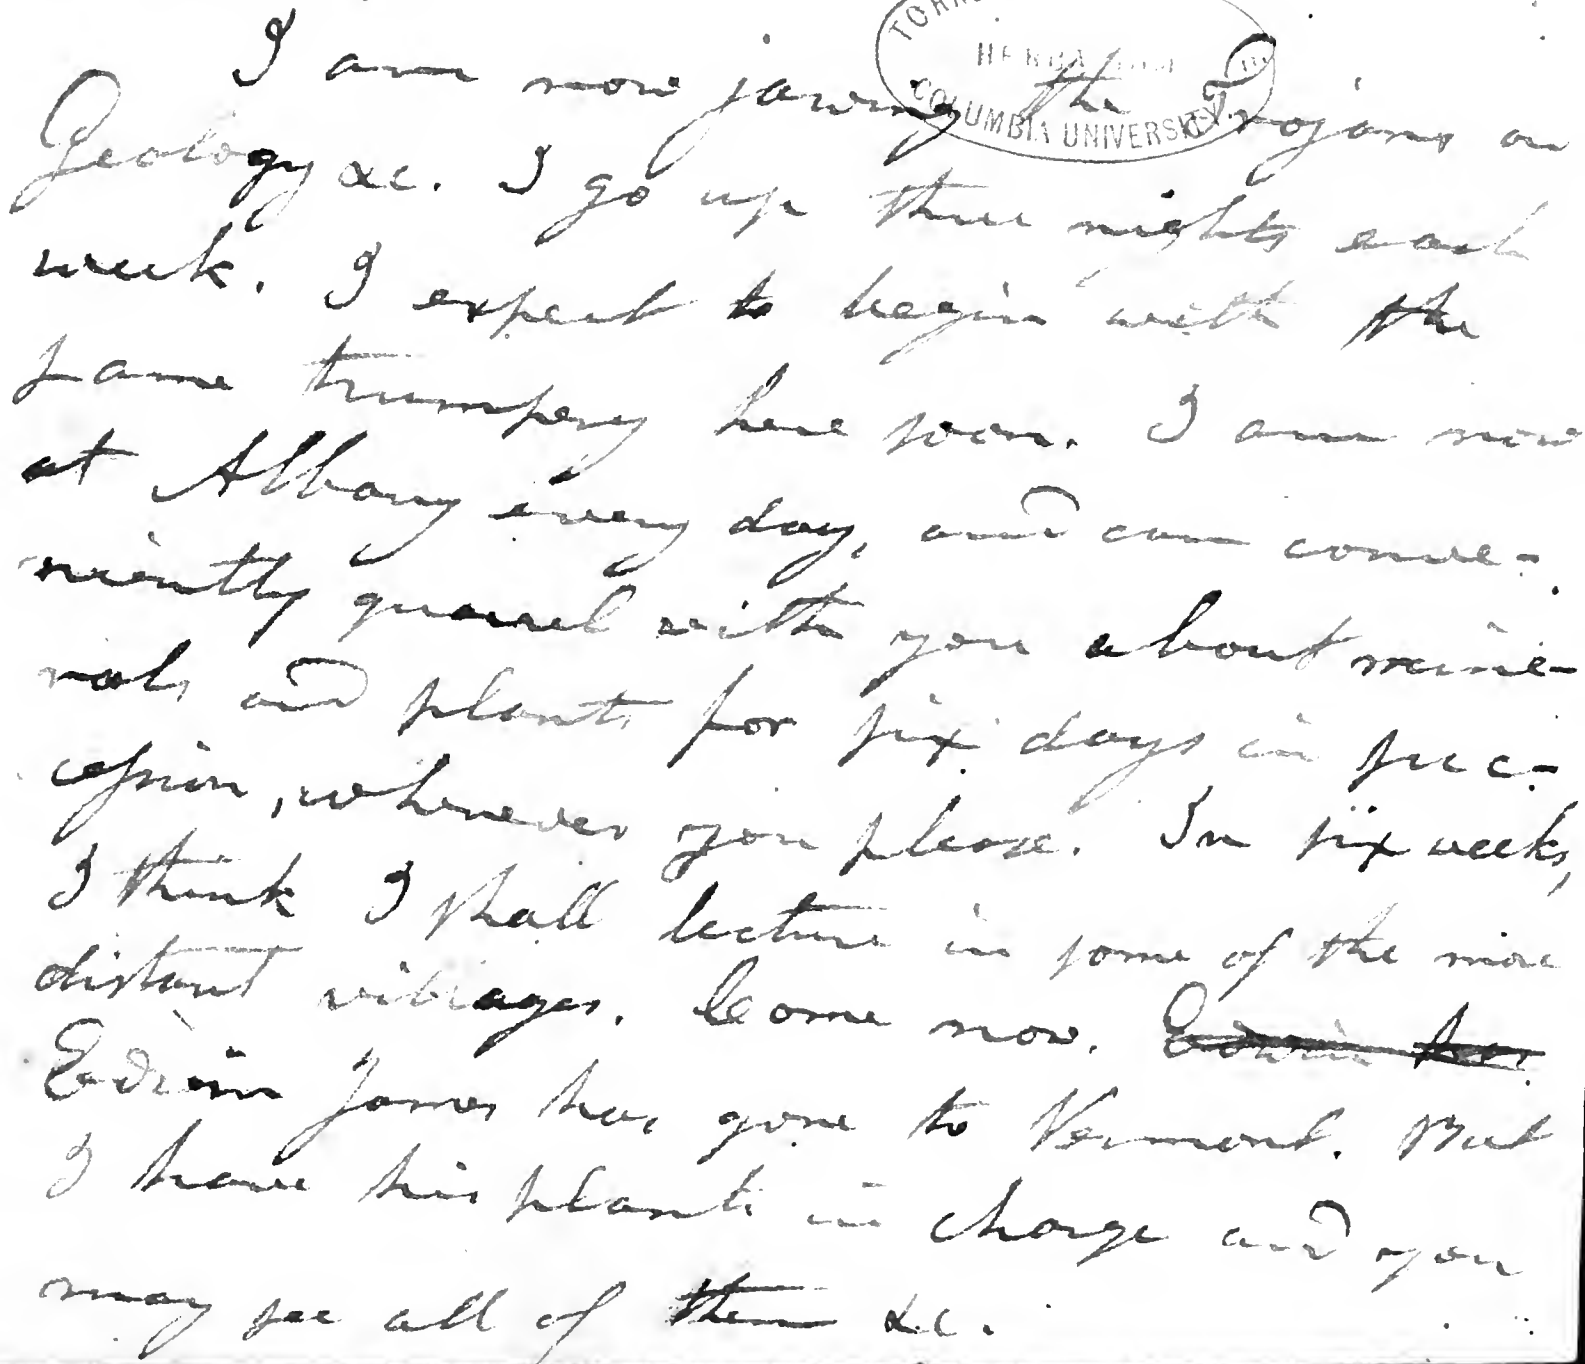 TORR
HERBARIUM
COLUMBIA UNIVERSITY
I am now jawing the Trojans on
Geology &c. I go up three nights each
week. I expect to begin with the
same trumpery here soon. I am now
at Albany every day, and can conve-
niently quarrel with you about mine-
rals and plants for six days in suc-
cession, whenever you please. In six weeks,
I think I shall lecture in some of the more
distant villages. Come now. Edwin has
Edwin James has gone to Vermont. But
I have his plants in charge and you
may see all of them &c.